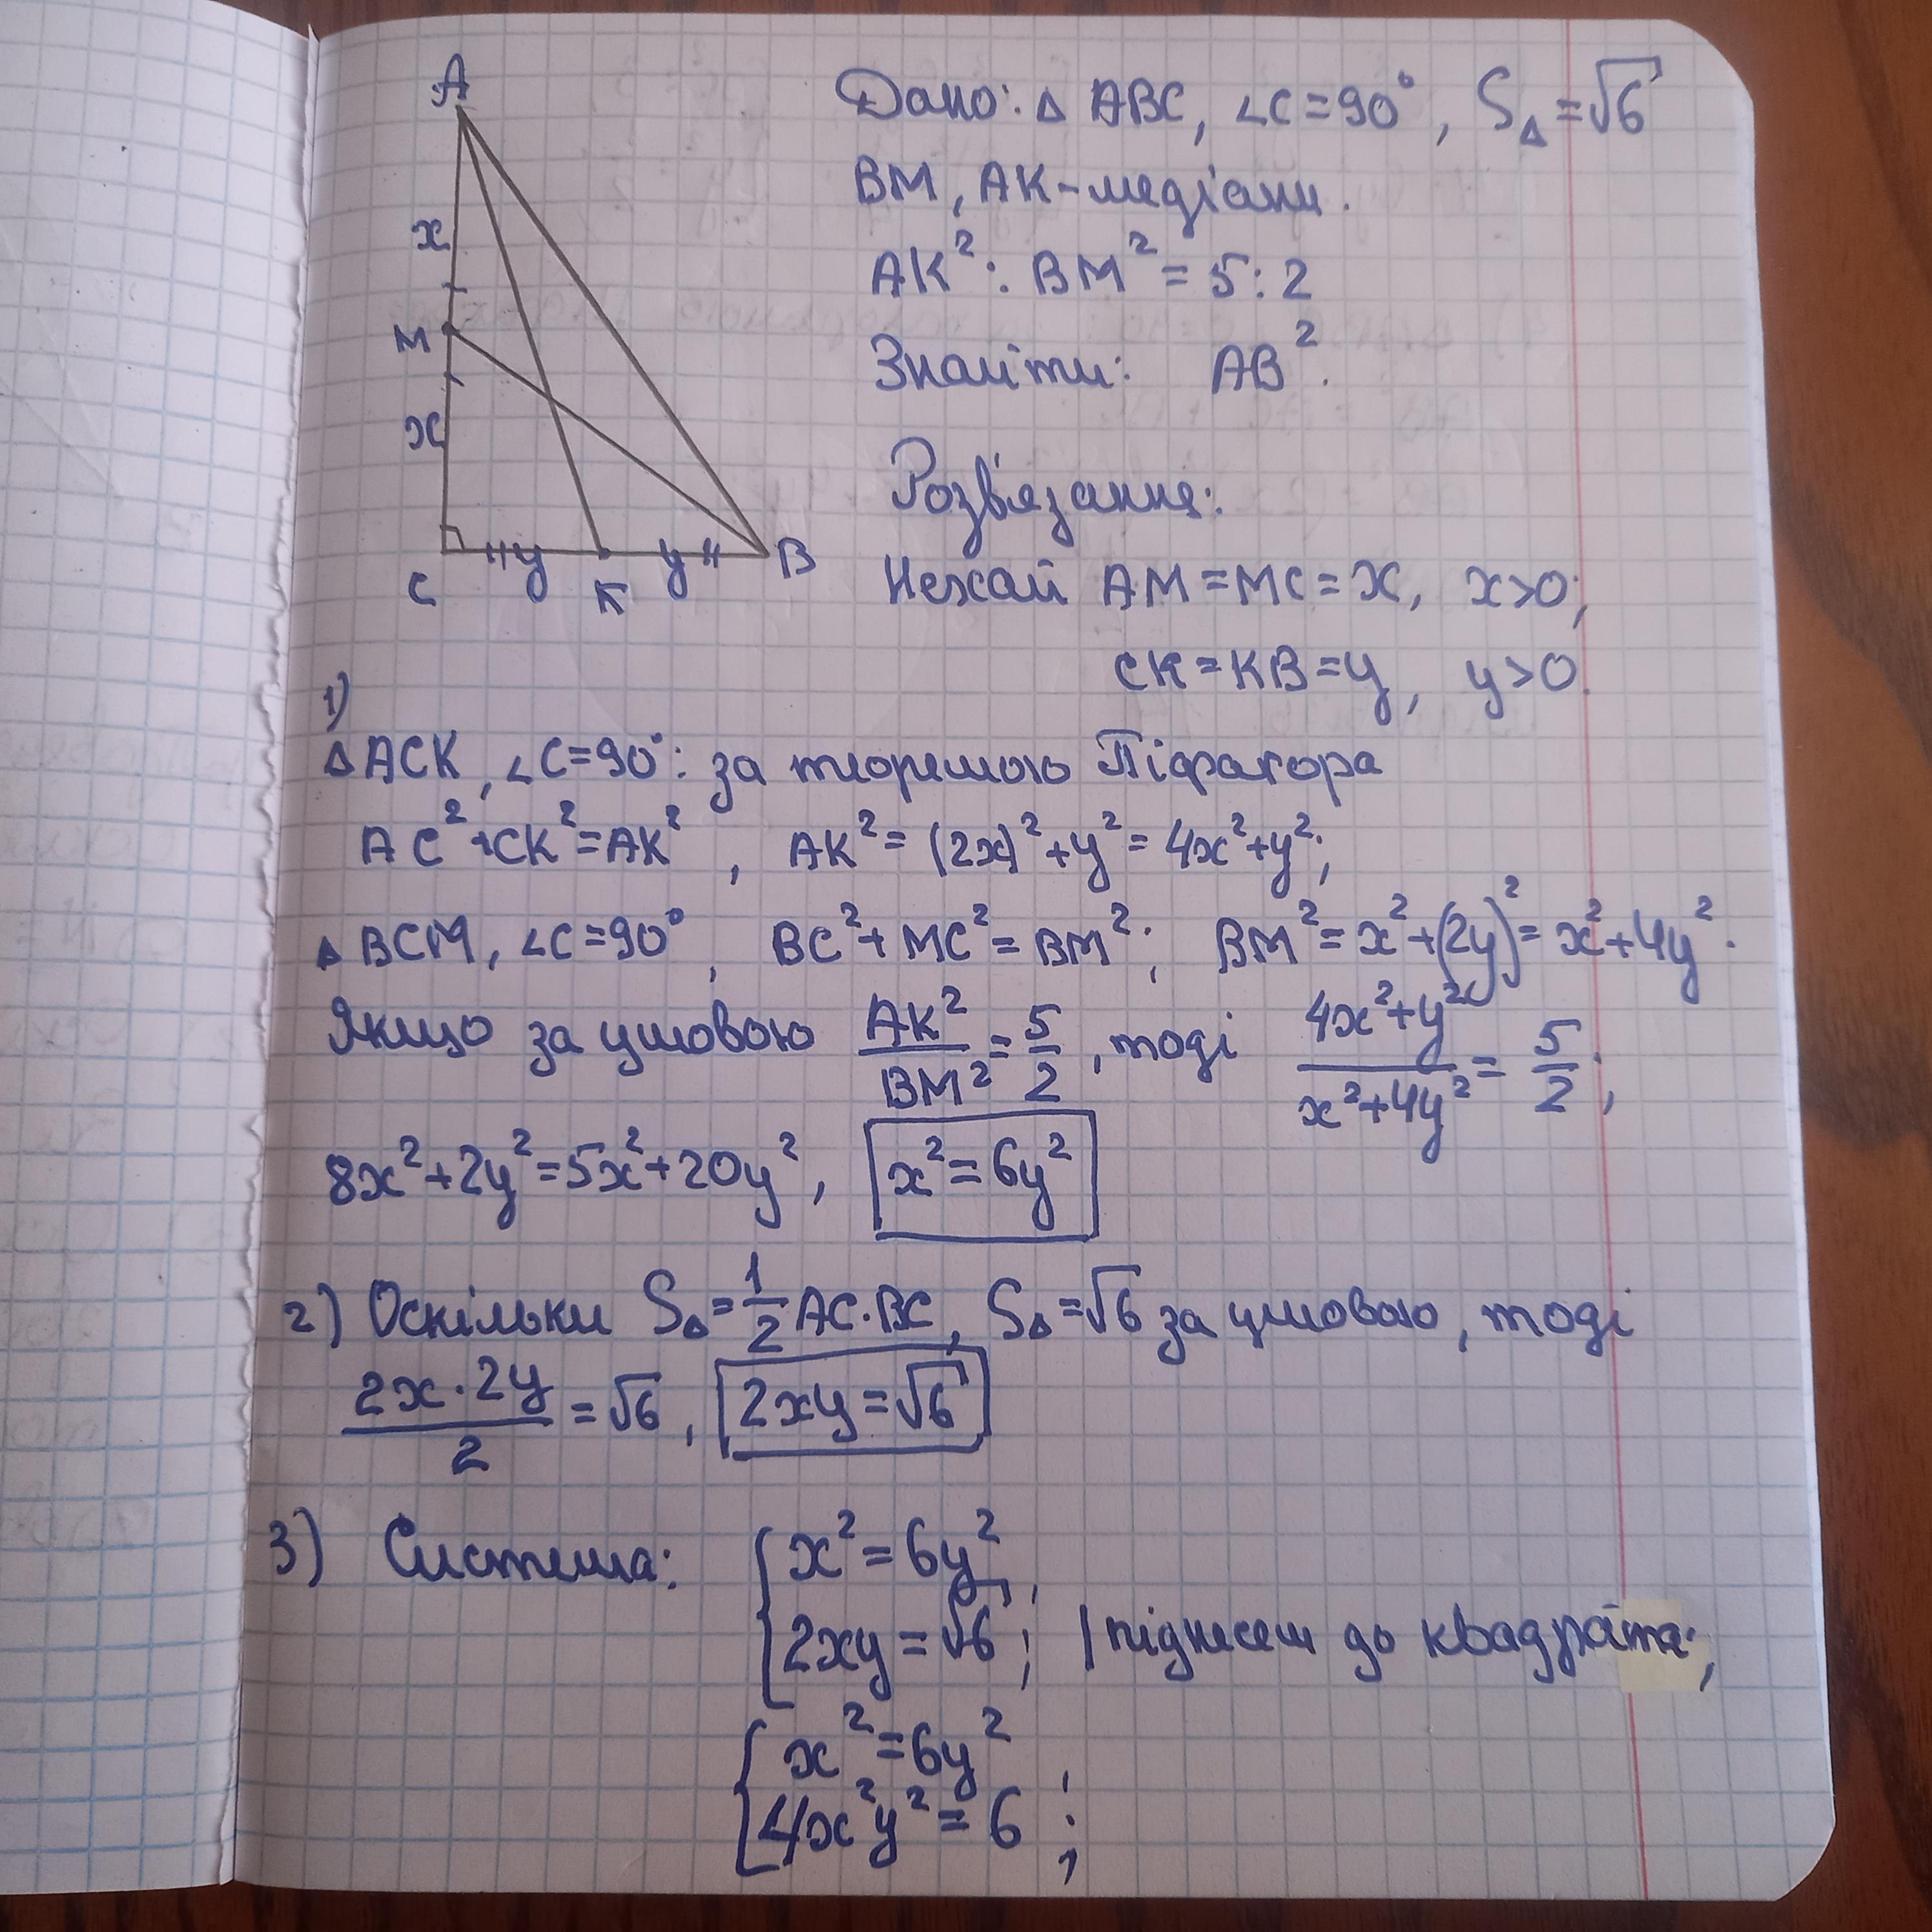 A
x
M
x
C
y
K
y
B
Дано: △ ABC, ∠C=90°, S△=√6
BM, AK-медіани.
AK²: BM²= 5:2
Знайти: AB².
Розв'язання:
Нехай AM=MC=x, x>0;
CK=KB=y, y>0.
1)
△ACK, ∠C=90°: за теоремою Піфагора
AC²+CK²=AK², AK²=(2x)²+y²=4x²+y²;
△BCM, ∠C=90°, BC²+MC²=BM²; BM²=x²+(2y)²=x²+4y².
Якщо за умовою AK²/BM²=5/2, тоді (4x²+y²)/(x²+4y²)=5/2;
8x²+2y²=5x²+20y², x²=6y²
2) Оскільки S△=1/2 AC·BC, S△=√6 за умовою, тоді
(2x·2y)/2=√6, 2xy=√6
3) Система: { x²=6y²,
2xy=√6; | піднесем до квадрата;
{ x²=6y²,
4x²y²=6;